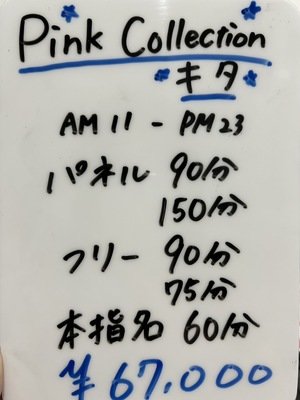 Pink Collection
キタ
AM 11 - PM 23
パネル 90分
150分
フリー 90分
75分
本指名 60分
¥67,000